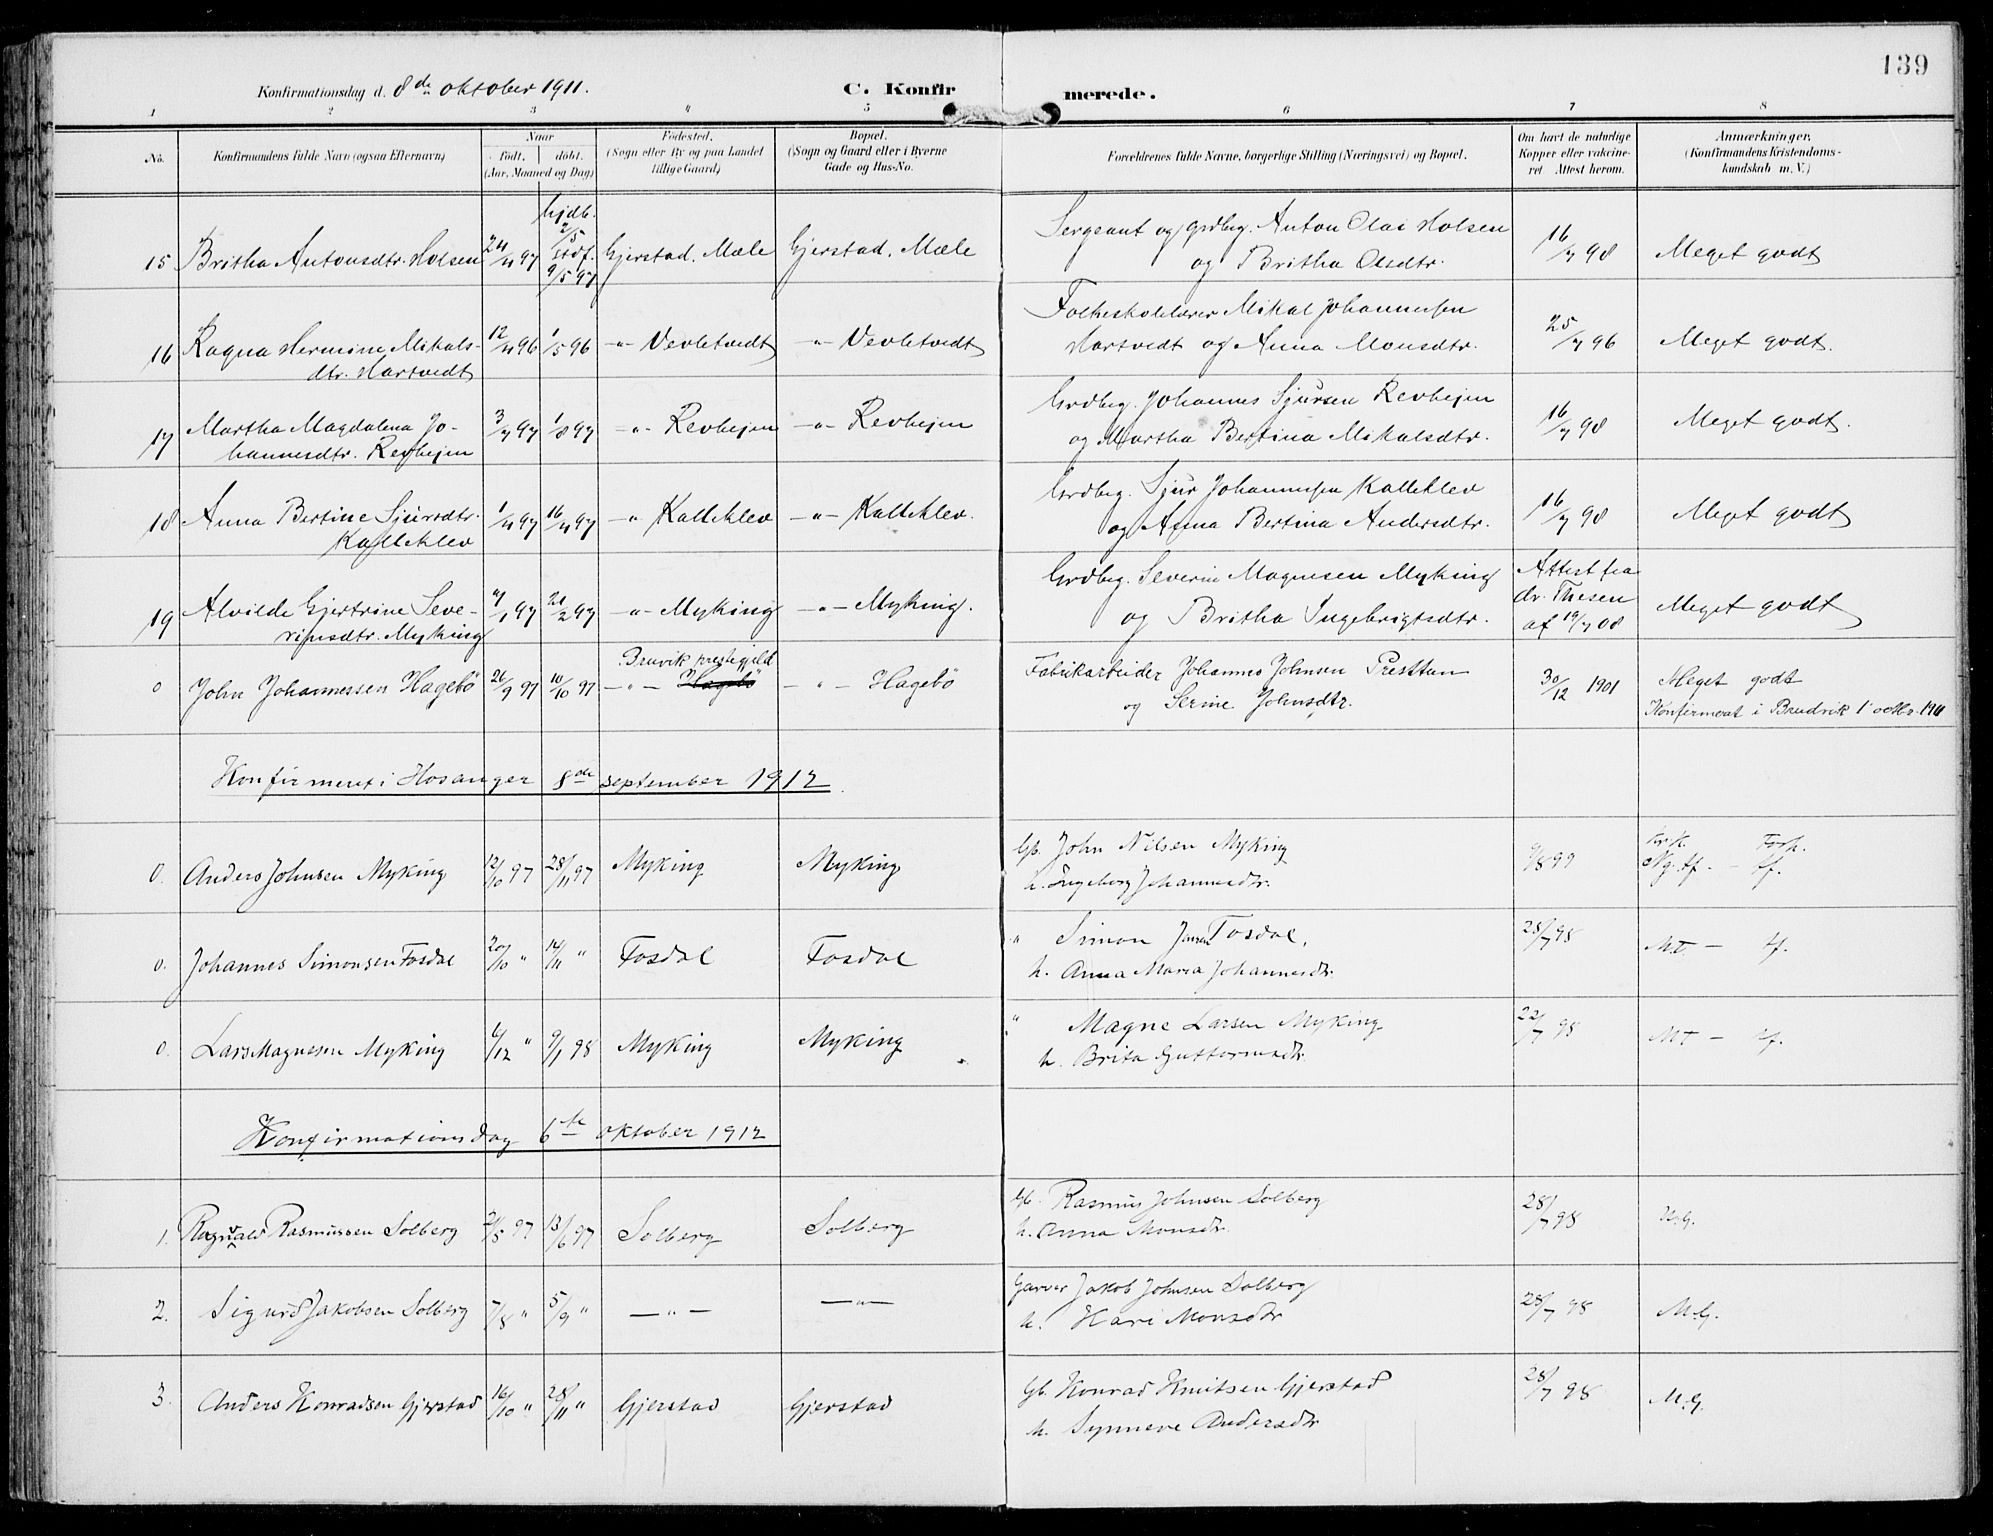 139
Konfirmationsdag d. 8de oktober 1911.
C. Konfirmerede.
1 2 3 4 5 6 7 8
No.
Konfirmandens fulde Navn (ogsaa Efternavn)
Naar
født, døbt,
(Aar, Maaned og Dag)
Fødested.
(Sogn eller By og paa Landet
tillige Gaard)
Bopæl.
(Sogn og Gaard eller i Byerne
Gade og Hus-No.
Forældrenes fulde Navne, borgerlige Stilling (Næringsvei) og Bopæl.
Om havt de naturlige
Kopper eller vakcine-
ret Attest herom.
Anmærkninger.
(Konfirmandens Kristendoms-
kundskab m. V.)
15 Britha Antonsdtr. Holsen 24/4 97 hjdb. 2/5 stdf. 9/5 97 Gjerstad, Mæle Gjerstad, Mæle
Sergeant og grdbrg. Anton Olai Holsen
og Britha Olsdtr.
16/7 98 Meget godt
16 Ragna Hermine Mikals-
dtr. Hartvedt
12/4 96 1/5 96 -"- Vevletvedt -"- Vevletvedt
Folkeskolelærer Mikal Johannessen
Hartvedt og Anna Monsdtr.
25/7 96 Meget godt.
17 Martha Magdalena Jo-
hannesdtr. Revhejen
3/7 97 1/8 97 -"- Revhejen -"- Revhejen
Grdbrg. Johannes Sjursen Revhejen
og Martha Bertina Mikalsdtr.
16/7 98 Meget godt.
18 Anna Bertine Sjursdtr.
Kalleklev
1/4 97 16/4 97 -"- Kalleklev -"- Kalleklev.
Grdbrg. Sjur Johannessen Kalleklev
og Anna Bertina Andersdtr.
16/7 98 Meget godt
19 Alvilde Gjertrine Seve-
rinsdtr. Myking
/1 97 21/2 97 -"- Myking -"- Myking.
Grdbrg. Severin Magnesen Myking
og Britha Ingebrigtsdtr.
Attest fra
dr. Thesen
af 19/7 08
Meget godt
0 John Johannessen Hagebö 26/9 97 10/10 97
Bruvik prestegjeld
-"- Hagebö -"- Hagebö
Fabrikarbeider Johannes Johnsen Presttun
og Serine Johnsdtr.
30/12 1901
Meget godt
Konfirmert i Brudvik 1 octbr. 1911
Konfirmert i Hosanger 8de september 1912
0. Anders Johnsen Myking 12/10 97 28/11 97 Myking Myking
Gb. John Nilsen Myking
h. Ingeborg Johannesdtr.
9/8 99
Krsk. Forh.
Ng. tf. - tf.
0. Johannes Simonsen Fosdal 20/10 " 14/11 " Fosdal Fosdal
" Simon Jensen Fosdal,
h. Anna Maria Johannesdtr.
28/7 98 MT - tf.
0. Lars Magnesen Myking 6/12 " 9/1 98 Myking Myking
" Magne Larsen Myking
h. Brita Guttormsdtr.
22/7 98 MT - tf.
Konfirmationsdag 6te oktober 1912
1. Ragnvald Rasmussen Solberg 21/5 97 13/6 97 Solberg Solberg
Gb. Rasmus Johnsen Solberg
h. Anna Monsdtr.
28/7 98 M.G.
2. Sigurd Jakobsen Solberg 7/8 " 5/9 " -"- -"-
Garver Jakob Johnsen Solberg
h. Kari Monsdtr
28/7 98 M.G.
3. Anders Konradsen Gjerstad 16/10 " 28/11 " Gjerstad Gjerstad
Gb. Konrad Knutsen Gjerstad
h. Synneve Andersdtr
28/7 98 M.G.